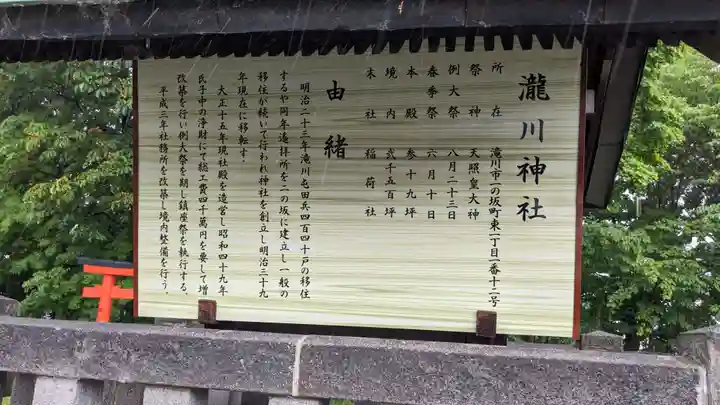 瀧川神社
所在 滝川市一の坂町東一丁目一番十二号
祭神 天照皇大神
例大祭 八月二十三日
春季祭 六月十日
本殿 参十九坪
境内 弐千五百坪
末社 稲荷社
由緒
明治二十三年滝川屯田兵四百四十戸の移住
するや同年遙拝所を二の坂に建立し一般の
移住が続いて行われ神社を創立し明治三十九
年現在に移転す、
大正十五年現社殿を造営し昭和四十九年
氏子中の浄財にて総工費四千萬円を要して増
改築を行い例大祭を期し鎮座祭を執行する、
平成三年社務所を改築し境内整備を行う、